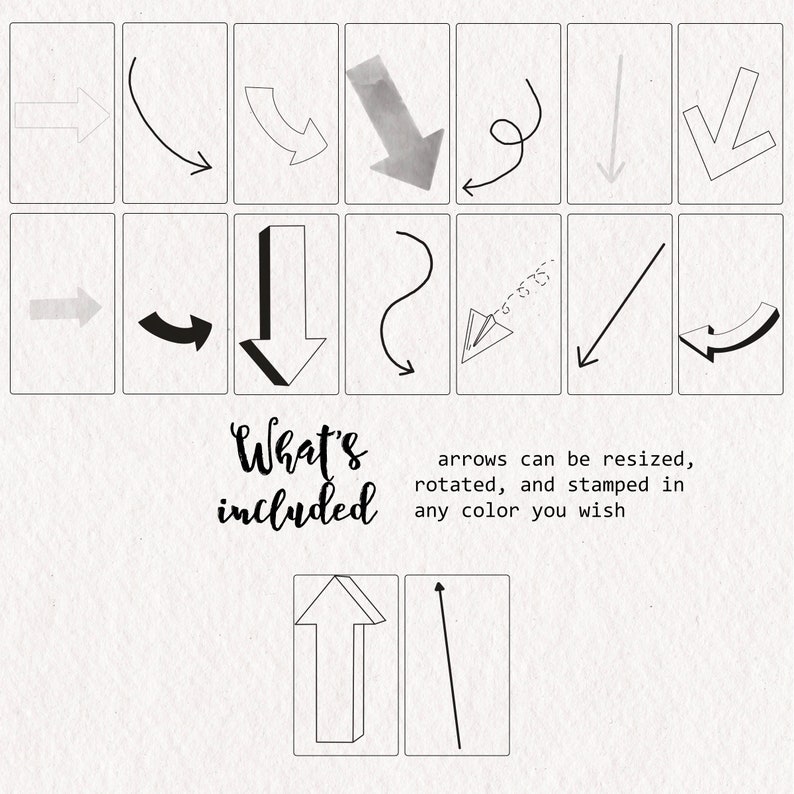 What's
included
arrows can be resized,
rotated, and stamped in
any color you wish